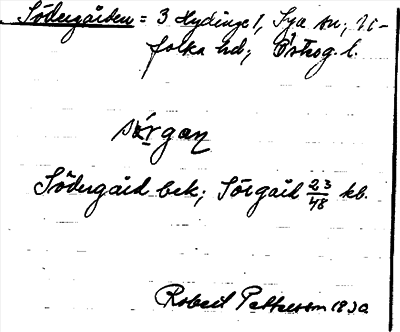 Södergården = 3 Hydinge 1, Sya sn; Vi-
folka hd; Östrog. l.
sǿrgan
Södergård bek; Sörgård 23/48 kb.
Robert Pettersson